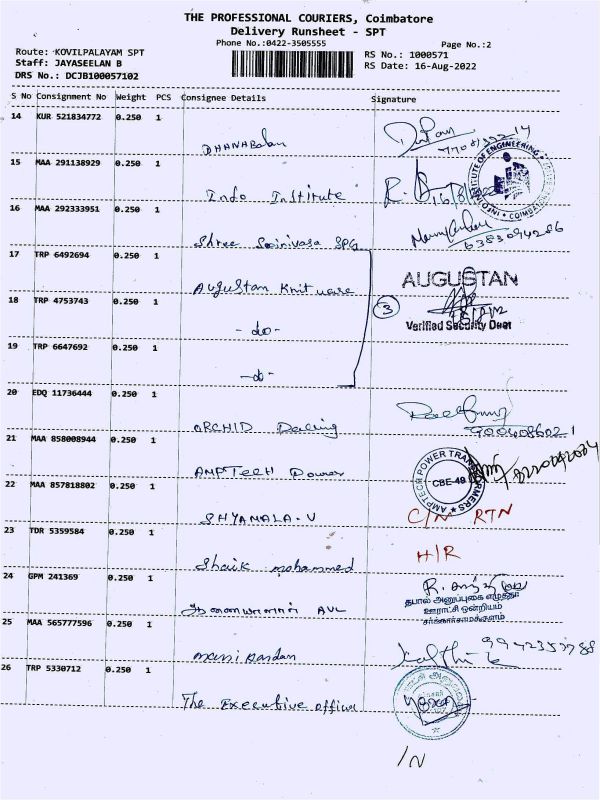 THE PROFESSIONAL COURIERS, Coimbatore
Delivery Runsheet - SPT
Phone No.:0422-3505555
Page No.:2
Route: KOVILPALAYAM SPT
RS No.: 1000571
Staff: JAYASEELAN B
RS Date: 16-Aug-2022
DRS No.: DCJB100057102
S No Consignment No Weight PCS Consignee Details Signature
14 KUR 521834772 0.250 1
DHANABalan
15 MAA 291138929 0.250 1
Indo Institute
16/8/
INSTITUTE OF ENGINEERING
COIMBATORE
16 MAA 292333951 0.250 1
Shree Srinivasa SPG
6383094286
17 TRP 6492694 0.250 1
Augustan Knit ware
AUGUSTAN
18 TRP 4753743 0.250 1
- do -
3
Verified Security Dept
19 TRP 6647692 0.250 1
- do -
20 EDQ 11736444 0.250 1
ORCHID
21 MAA 858008944 0.250 1
AMPTECH Power
AMPTECH POWER TRANSFORMERS
CBE-49
22 MAA 857818802 0.250 1
SHYAMALA . V
C/N RTN
23 TDR 5359584 0.250 1
Shaik mohammed
H/R
24 GPM 241369 0.250 1
AVL
R.
தபால் அனுப்புகை எழுத்தர்
ஊராட்சி ஒன்றியம்
சர்க்கார்சாமக்குளம்
25 MAA 565777596 0.250 1
manikandan
26 TRP 5330712 0.250 1
The Executive officer
IN